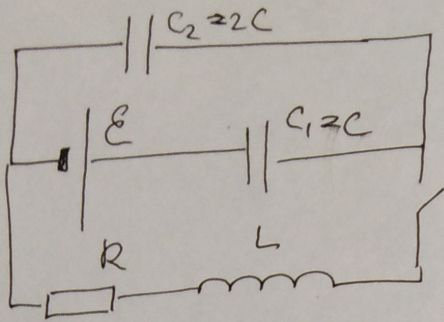 C₂=2C
Ɛ
C₁=C
R
L